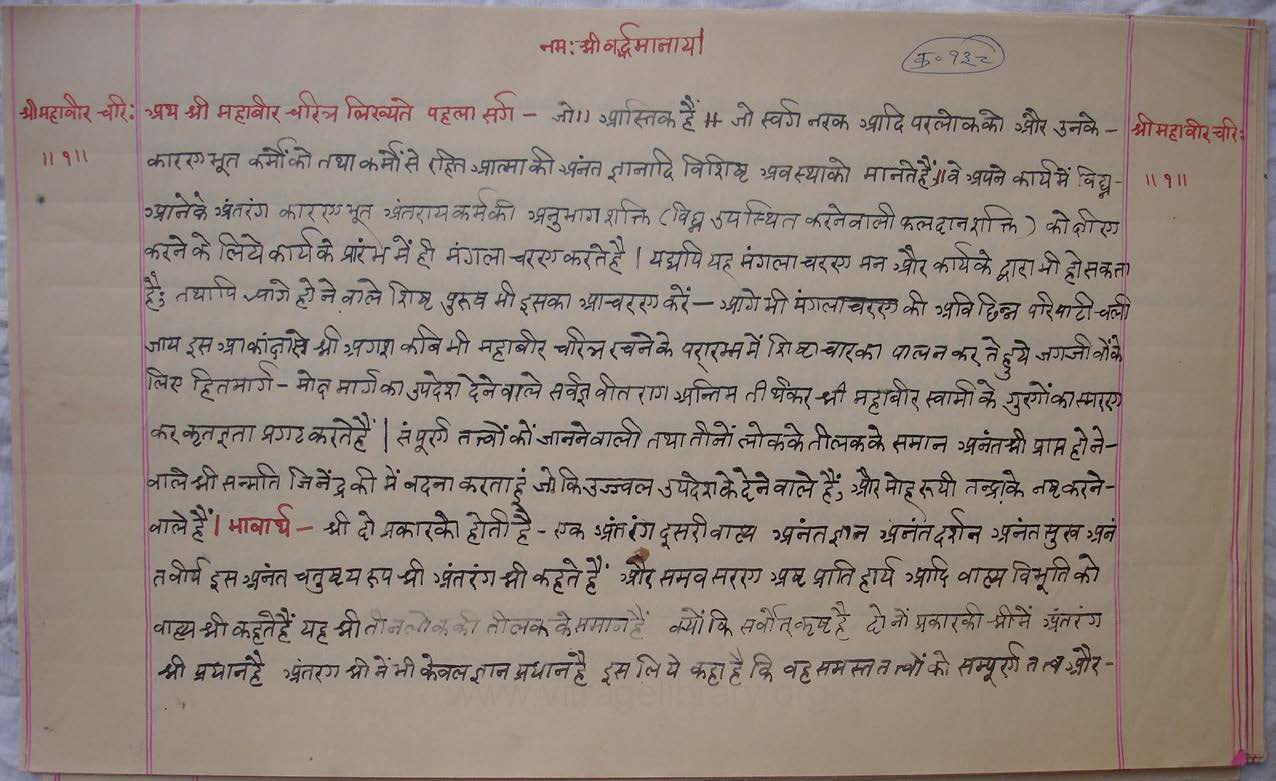 नमः श्री वर्द्धमानाय।
क॰ १३८
श्री महाबीर चरि:
॥ १ ॥
अथ श्री महाबीर चरित्र लिख्यते पहला सर्ग - जो॥ आस्तिक हैं ॥ जो स्वर्ग नरक आदि परलोकको और उनके -
कारण भूत कर्मों को तथा कर्मों से रहित आत्मा की अनंत ज्ञानादि विशिष्ट अवस्थाको मानते हैं॥ वे अपने कार्य में विघ्न -
आनेके अंतरंग कारण भूत अंतराय कर्मकी अनुभाग शक्ति (विघ्न उपस्थित करनेवाली फलदान शक्ति) को क्षीण
करने के लिये कार्य के प्रारंभ में ही मंगला चरण करते है | यद्यपि यह मंगला चरण मन और कार्य के द्वारा भी हो सकता
है; तथापि आगे होने वाले शिष्ट पुरुष भी इसका आचरण करें - आगे भी मंगलाचरण की अवि छिन्न परिपाटी चली
जाय इस आकांक्षासे श्री अगश कवि भी महाबीर चरित्र रचने के प्रारम्भ में शिष्टाचार का पालन कर ते हुये जगज्जीवोंके
लिए हितमार्ग - मोक्ष मार्ग का उपदेश देने वाले सर्वज्ञ वीत राग अन्तिम ती र्थंकर श्री महाबीर स्वामी के गुणों का स्मरण
कर कृतज्ञता प्रगट करते हैं | संपूर्ण तत्त्वों कों जानने वाली तथा तीनों लोकके तीलक के समान अनंत श्री प्राप्त होने -
वाले श्री सन्मति जिनेंद्र की में बदना करता हूं जो कि उज्ज्वल उपदेश के देने वाले हैं; और मोह रूपी तन्द्राके नष्ट करने -
वाले हैं | भावार्थ - श्री दो प्रकारकी होती है - एक अंतरंग दूसरी वाह्य अनंत ज्ञान अनंत दर्शन अनंत सुख अनं
त वीर्य इस अनंत चतुष्टय रूप श्री अंतरंग श्री कहते हैं और समव सरण अष्ट प्राति हार्य आदि वाह्य विभूति को
वाह्य श्री कहते हैं यह श्री तीन लोक की तीलक के समान हैं क्यों कि सर्वोत्कृष्ट है दो नों प्रकार की श्री में अंतरंग
श्री प्रधान है अंतरंग श्री में भी केवल ज्ञान प्रधान है इस लि ये कहा है कि वह समस्त तत्वों को सम्पूर्ण तत्व और -
श्री महाबीर चरि:
॥ १ ॥